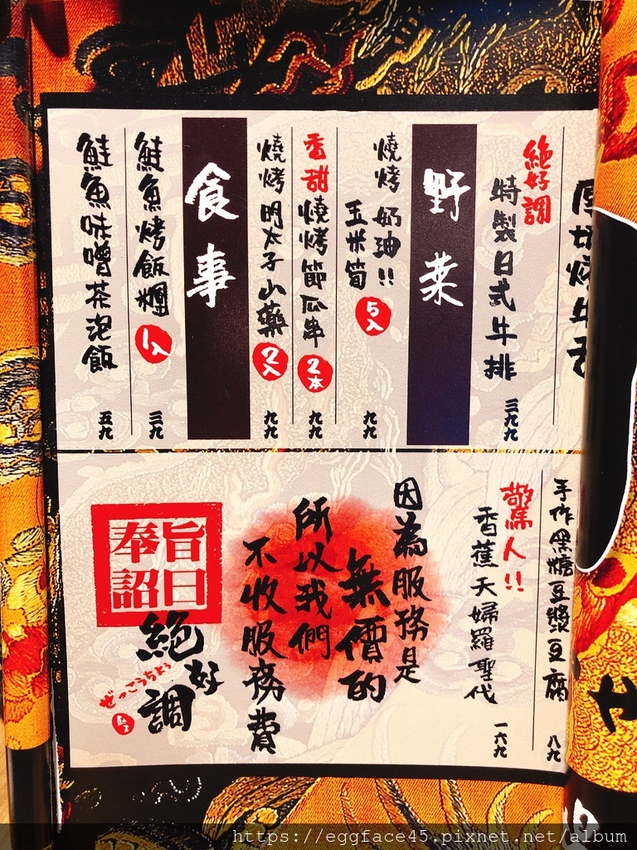 厚切燒牛舌
絕好調
特製日式牛排
三九九
野菜
燒烤 奶油!!
玉米筍
5入
九九
香甜燒烤節瓜串
2本
九九
燒烤 明太子山藥
2入
九九
食事
鮭魚烤飯糰
1入
三九
鮭魚味噌茶泡飯
五九
手作黑糖豆漿豆腐
八九
驚人!!
香蕉天婦羅聖代
一六九
因為服務是
無價的
所以我們
不收服務費
旨曰
奉詔
絕好調
ぜっこうちょう
https://eggface45.pixnet.net/album